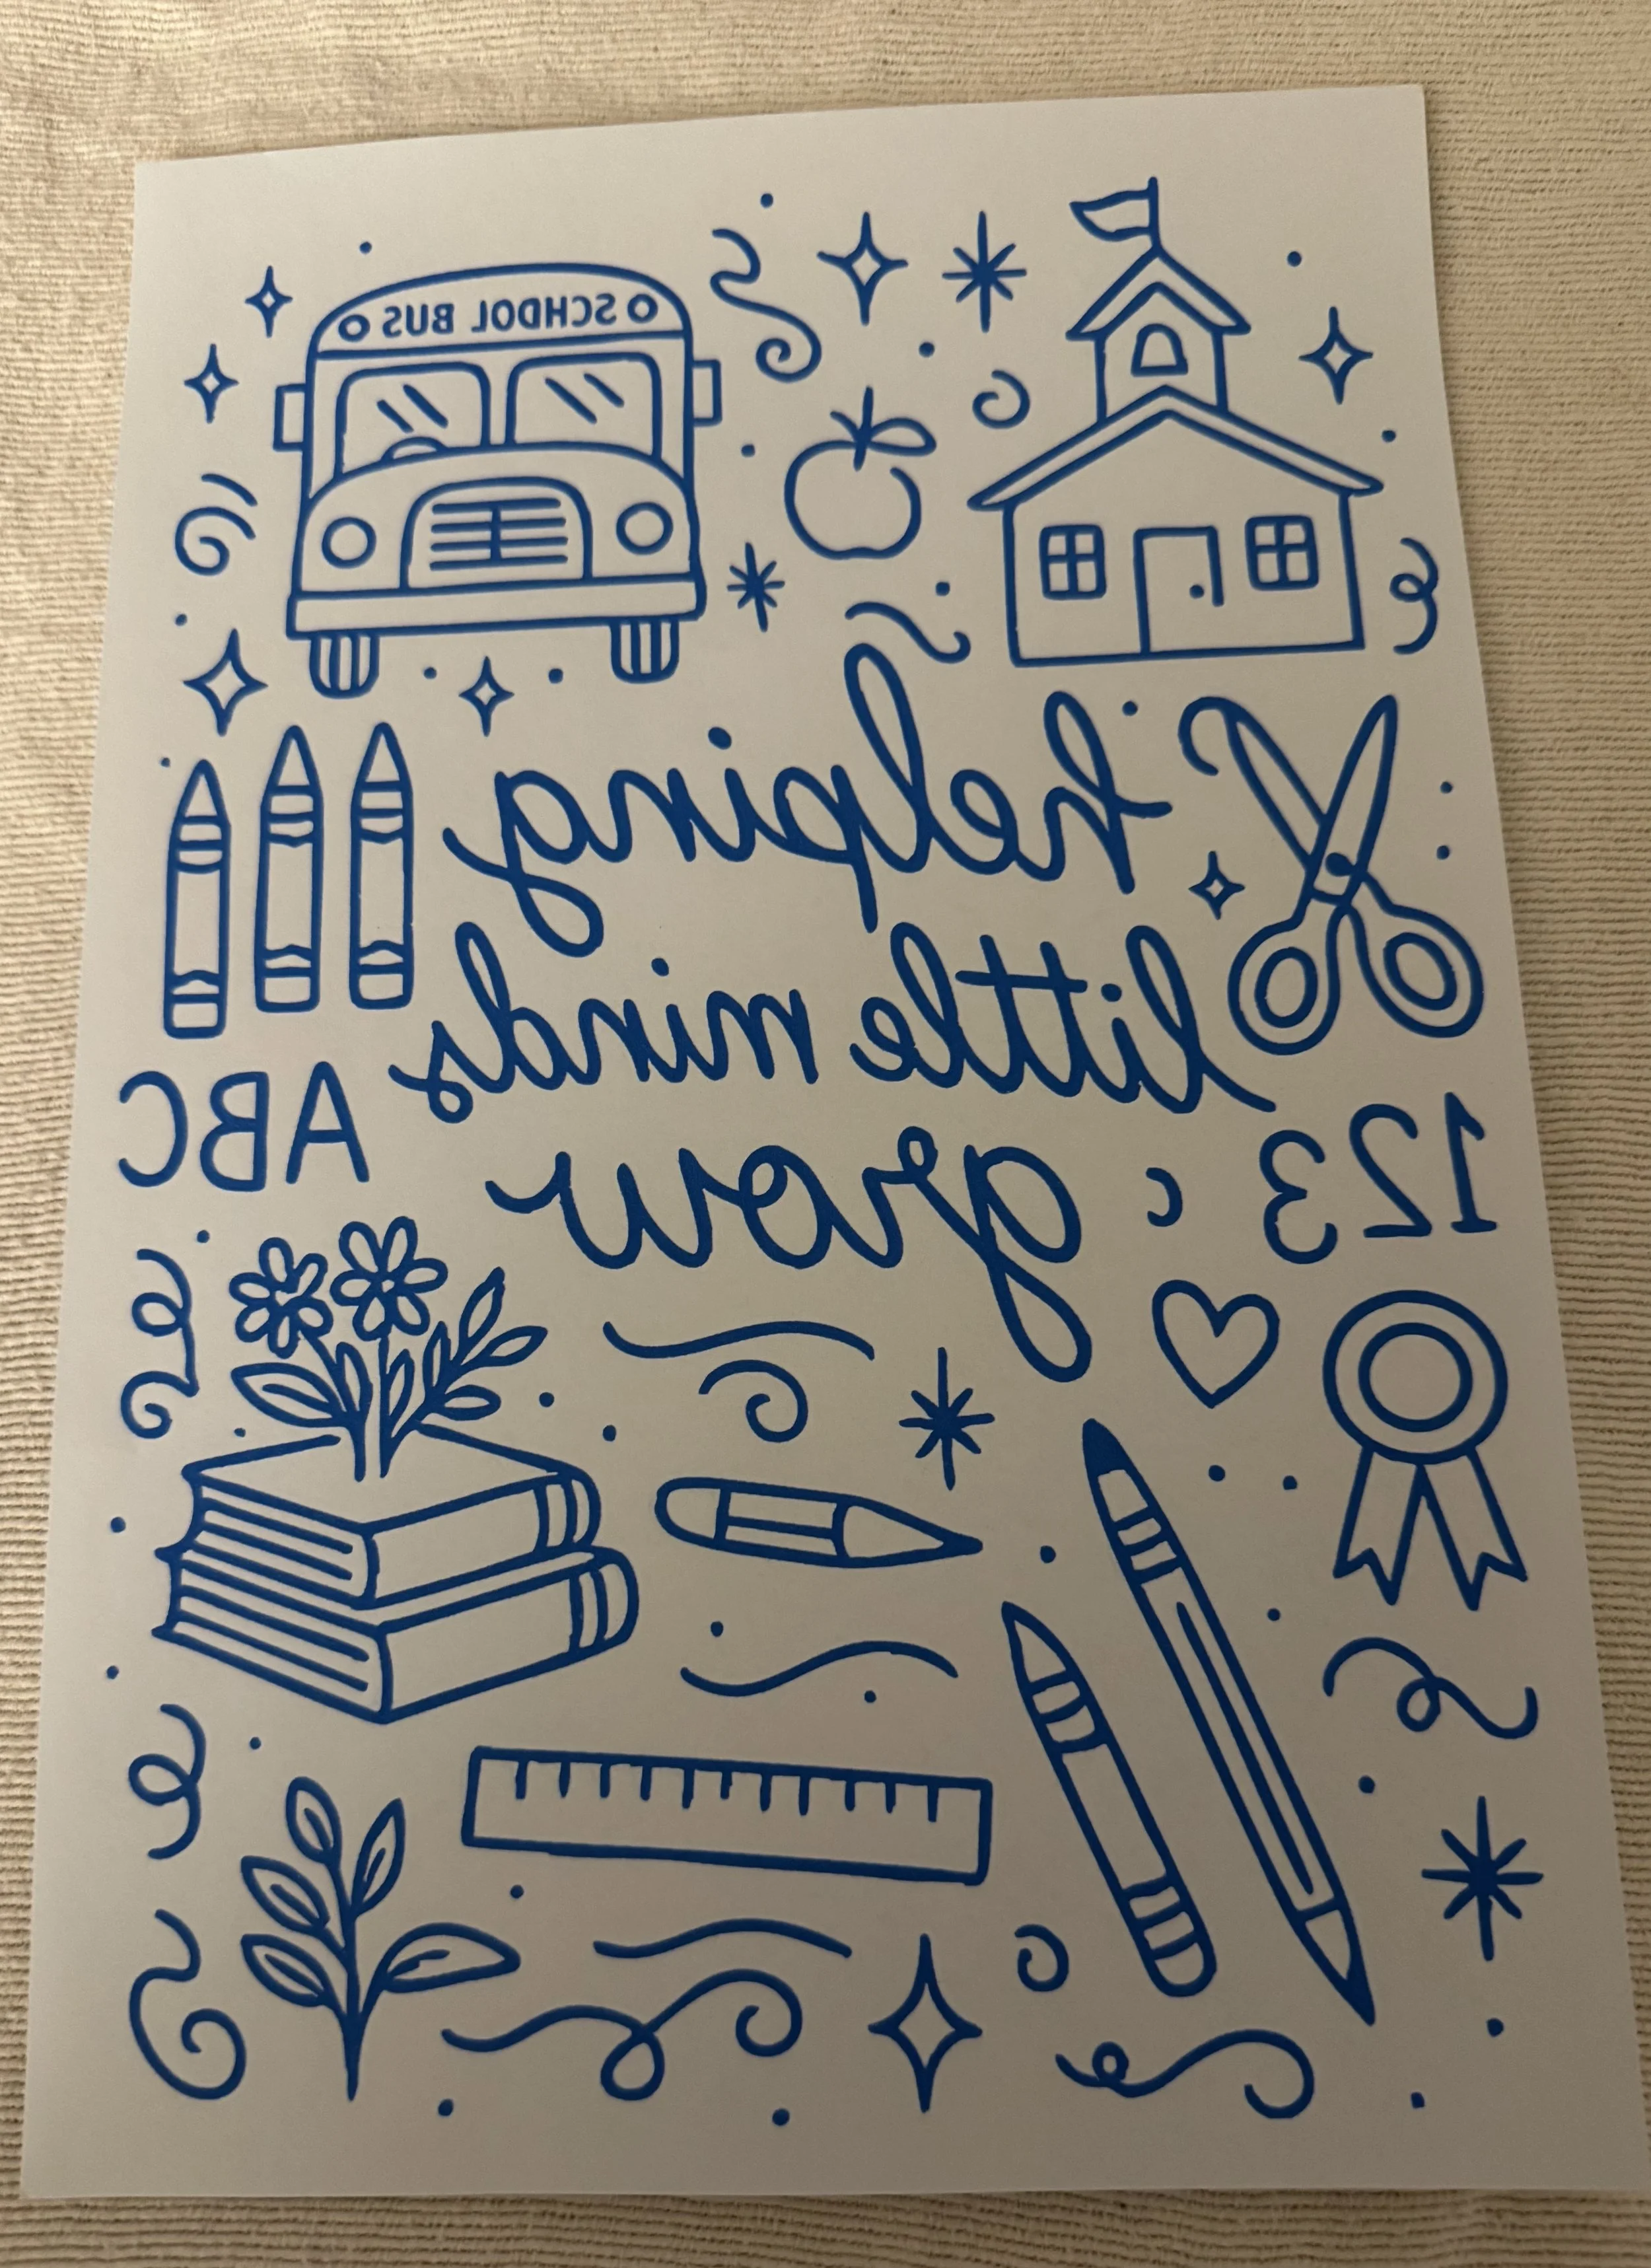 SCHOOL BUS
helping
little minds
grow
123
ABC